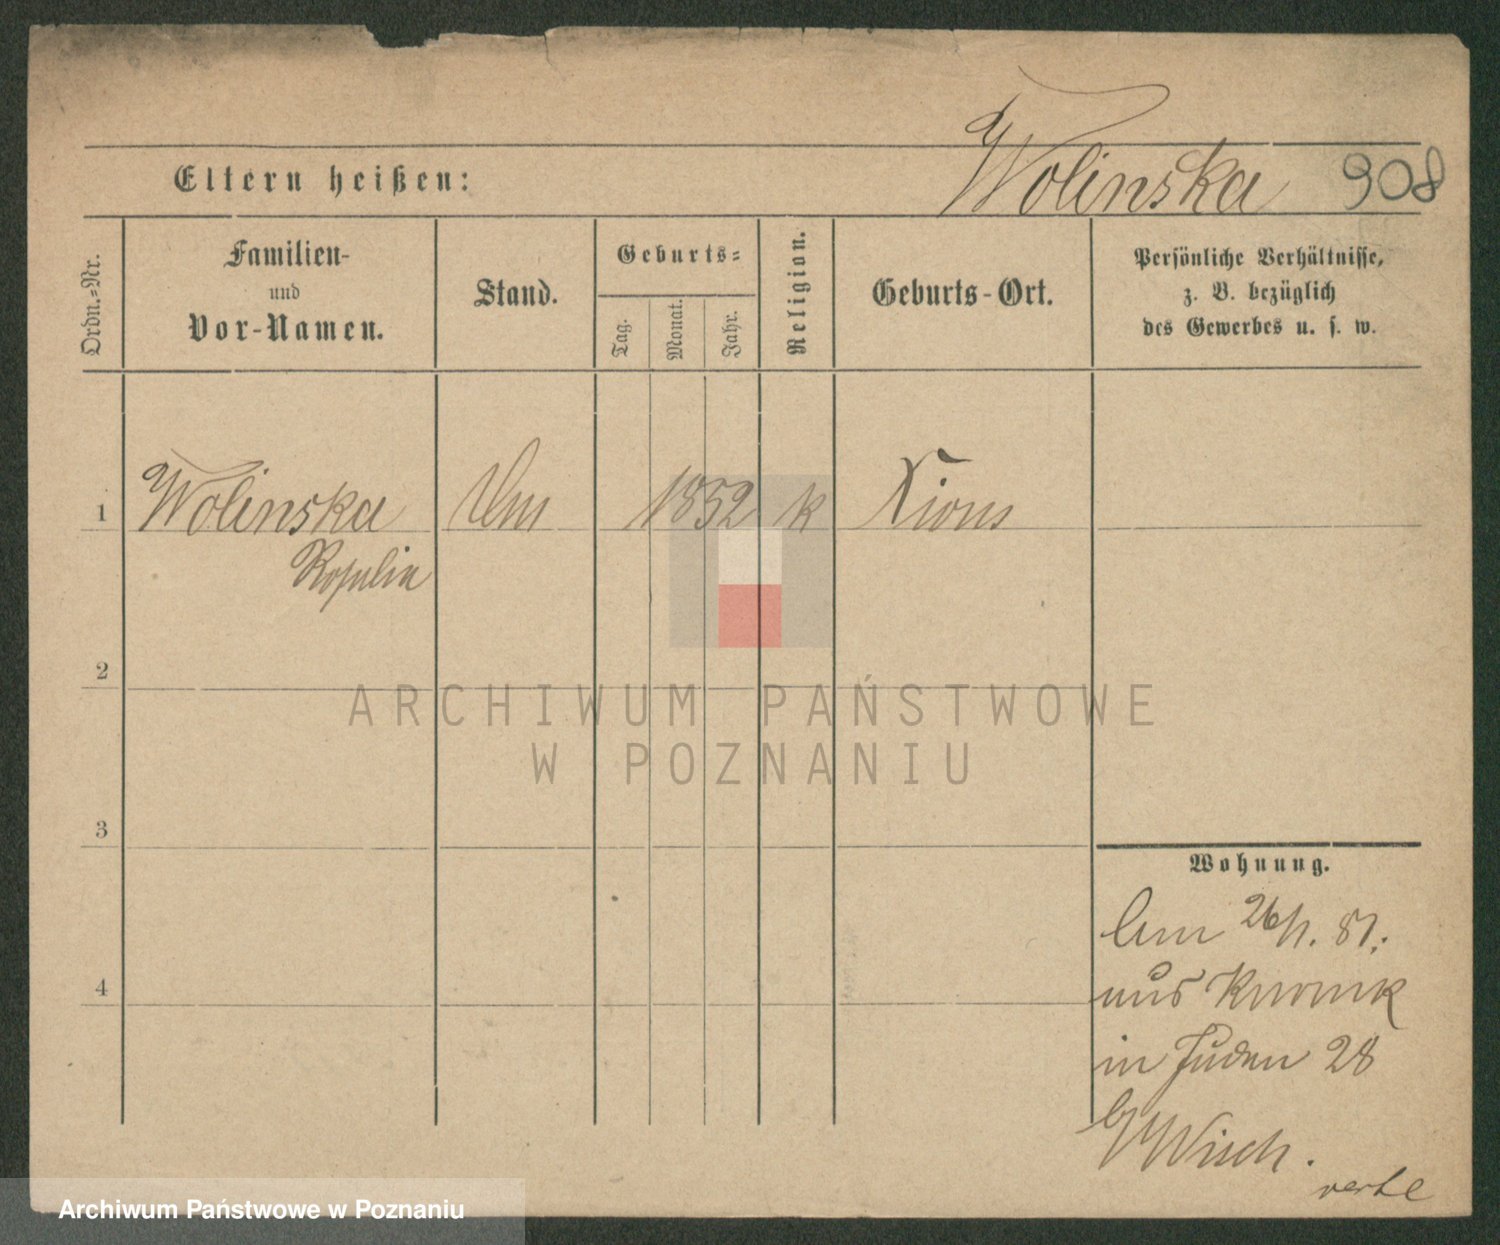 Wolinska 908
Eltern heißen:
Ordn.=Nr.
Familien-
und
Vor-Namen.
Stand.
Geburts=
Tag.
Monat.
Jahr.
Religion.
Geburts-Ort.
Persönliche Verhältnisse,
z. B. bezüglich
des Gewerbes u. s. w.
1 Wolinska 1852 k Xions
Rosalia
2
3
4
ARCHIWUM PAŃSTWOWE
W POZNANIU
Wohnung.
Am 26/1. 81.
aus Kurnik
in Juden 28
b/ Wisch.
Archiwum Państwowe w Poznaniu